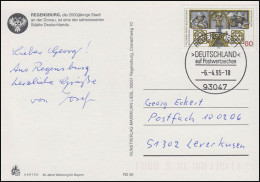 REGENSBURG, die 2000jährige Stadt
an der Donau, ist eine der sehenswerten
Städte Deutschlands.
Lieber Georg!
Aus Regensburg
herzliche Grüße
von Josef
KUNSTVERLAG
Regensburg
60
DEUTSCHLAND
auf Postwertzeichen
-6.-4.95-18
93047
Georg Eckert
Postfach 100206
51302 Leverkusen